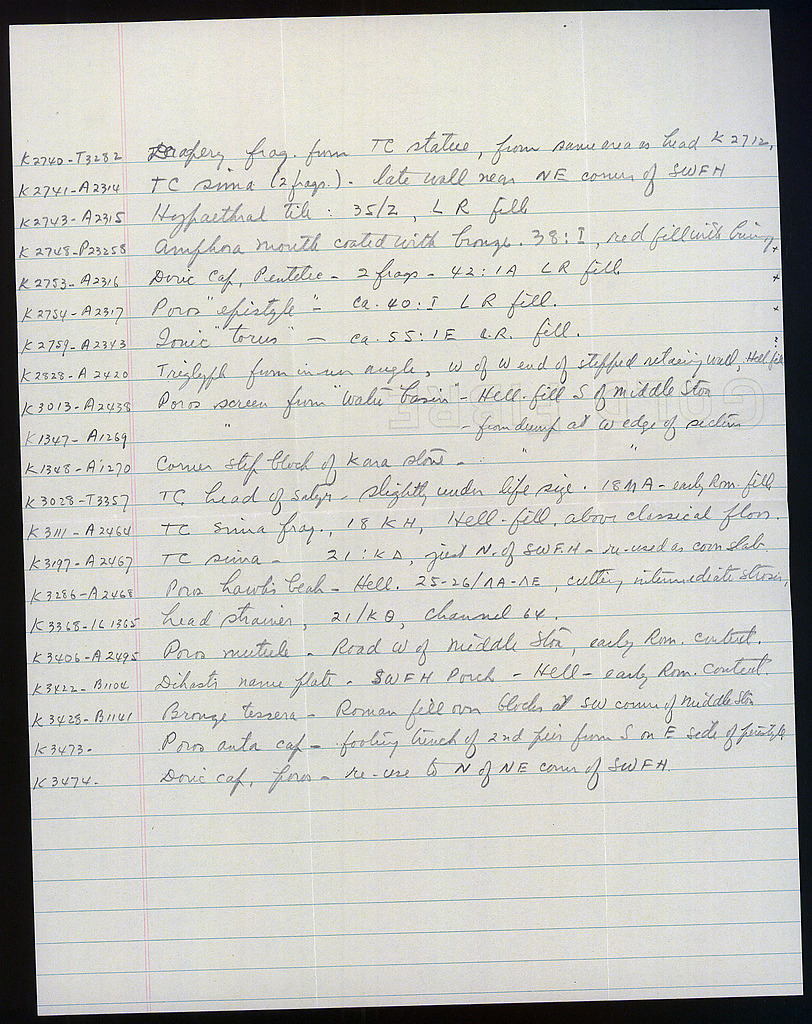 K2740-T3282 Drapery frag. from TC statue, from same area as head K 2712,
K2741-A2314 TC sima (2 frags.). Late wall near NE corner of SWFH
K2743-A2315 Hypaethral tile : 35/Z, L R fill
K2748-P23258 Amphora mouth coated with bronze. 38:I, red fill with
K2753-A2316 Doric cap, Pentelic - 2 frags - 42:1A LR fill
K2754-A2317 Poros "epistyle" - ca. 40:I L R fill.
K2759-A2343 Ionic "torus" - ca. 55:1E L.R. fill.
K2828-A2420 Triglyph from inner angle, W of W end of stepped retaining wall, Hell. fill
K3013-A2438 Poros screen from "Water basin" - Hell. fill S of Middle Stoa
K1347-A1269 " - from dump at W edge of section
K1348-A1270 Corner step block of Kara stone - " "
K3028-T3357 TC head of satyr - slightly under life size. 18 ΛA - early Rom. fill
K3111-A2464 TC sima frag., 18 KH, Hell. fill, above classical floor.
K3197-A2467 TC sima - 21:KΔ, just N. of SWFH - re-used as cover slab.
K3286-A2468 Poros hawk's beak - Hell. 25-26/ΛA-ΛE, cutting intermediate strosis,
K3368-IL1365 Lead strainer, 21/KΘ, Channel 64.
K3406-A2495 Poros mutule - Road W of Middle Stoa, early Rom. context.
K3422-B1104 Dikast's name plate - SWFH Porch - Hell - early Rom. context.
K3428-B1141 Bronze tessera - Roman fill over blocks at SW corner of Middle Stoa
K3473- Poros anta cap - footing trench of 2nd pier from S on E side of peristyle
K3474- Doric cap, poros - re-use to N of NE corner of SWFH.